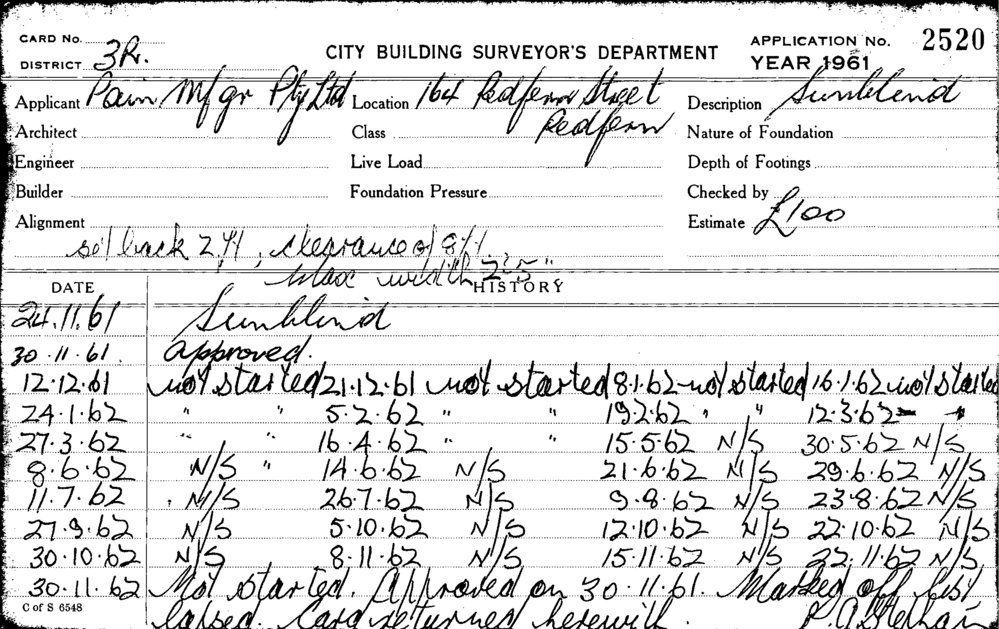 CARD No. CITY BUILDING SURVEYOR'S DEPARTMENT APPLICATION No. 2520
DISTRICT 3R. YEAR 1961
Applicant Pain Mfgr Pty Ltd Location 164 Redfern Street Description Sunblind
Architect Class Redfern Nature of Foundation
Engineer Live Load Depth of Footings
Builder Foundation Pressure Checked by
Alignment Estimate £100
set back 2 ft, clearance of 8 ft
Max width
DATE HISTORY
24.11.61 Sunblind
30.11.61. Approved.
12.12.61 not started 21.12.61 not started 8.1.62 not started 16.1.62 not started
24.1.62 " " 5.2.62 " " 19.2.62 " " 12.3.62 " "
27.3.62 " " 16.4.62 " " 15.5.62 N/S 30.5.62 N/S
8.6.62 N/S " 14.6.62 N/S 21.6.62 N/S 29.6.62 N/S
11.7.62 N/S 26.7.62 N/S 9.8.62 N/S 23.8.62 N/S
27.9.62 N/S 5.10.62 N/S 12.10.62 N/S 22.10.62 N/S
30.10.62 N/S 8.11.62 N/S 15.11.62 N/S 22.11.62 N/S
30.11.62 Not started. Approved on 30.11.61. Marked off list
C of S 6548
lapsed. Card returned herewith.